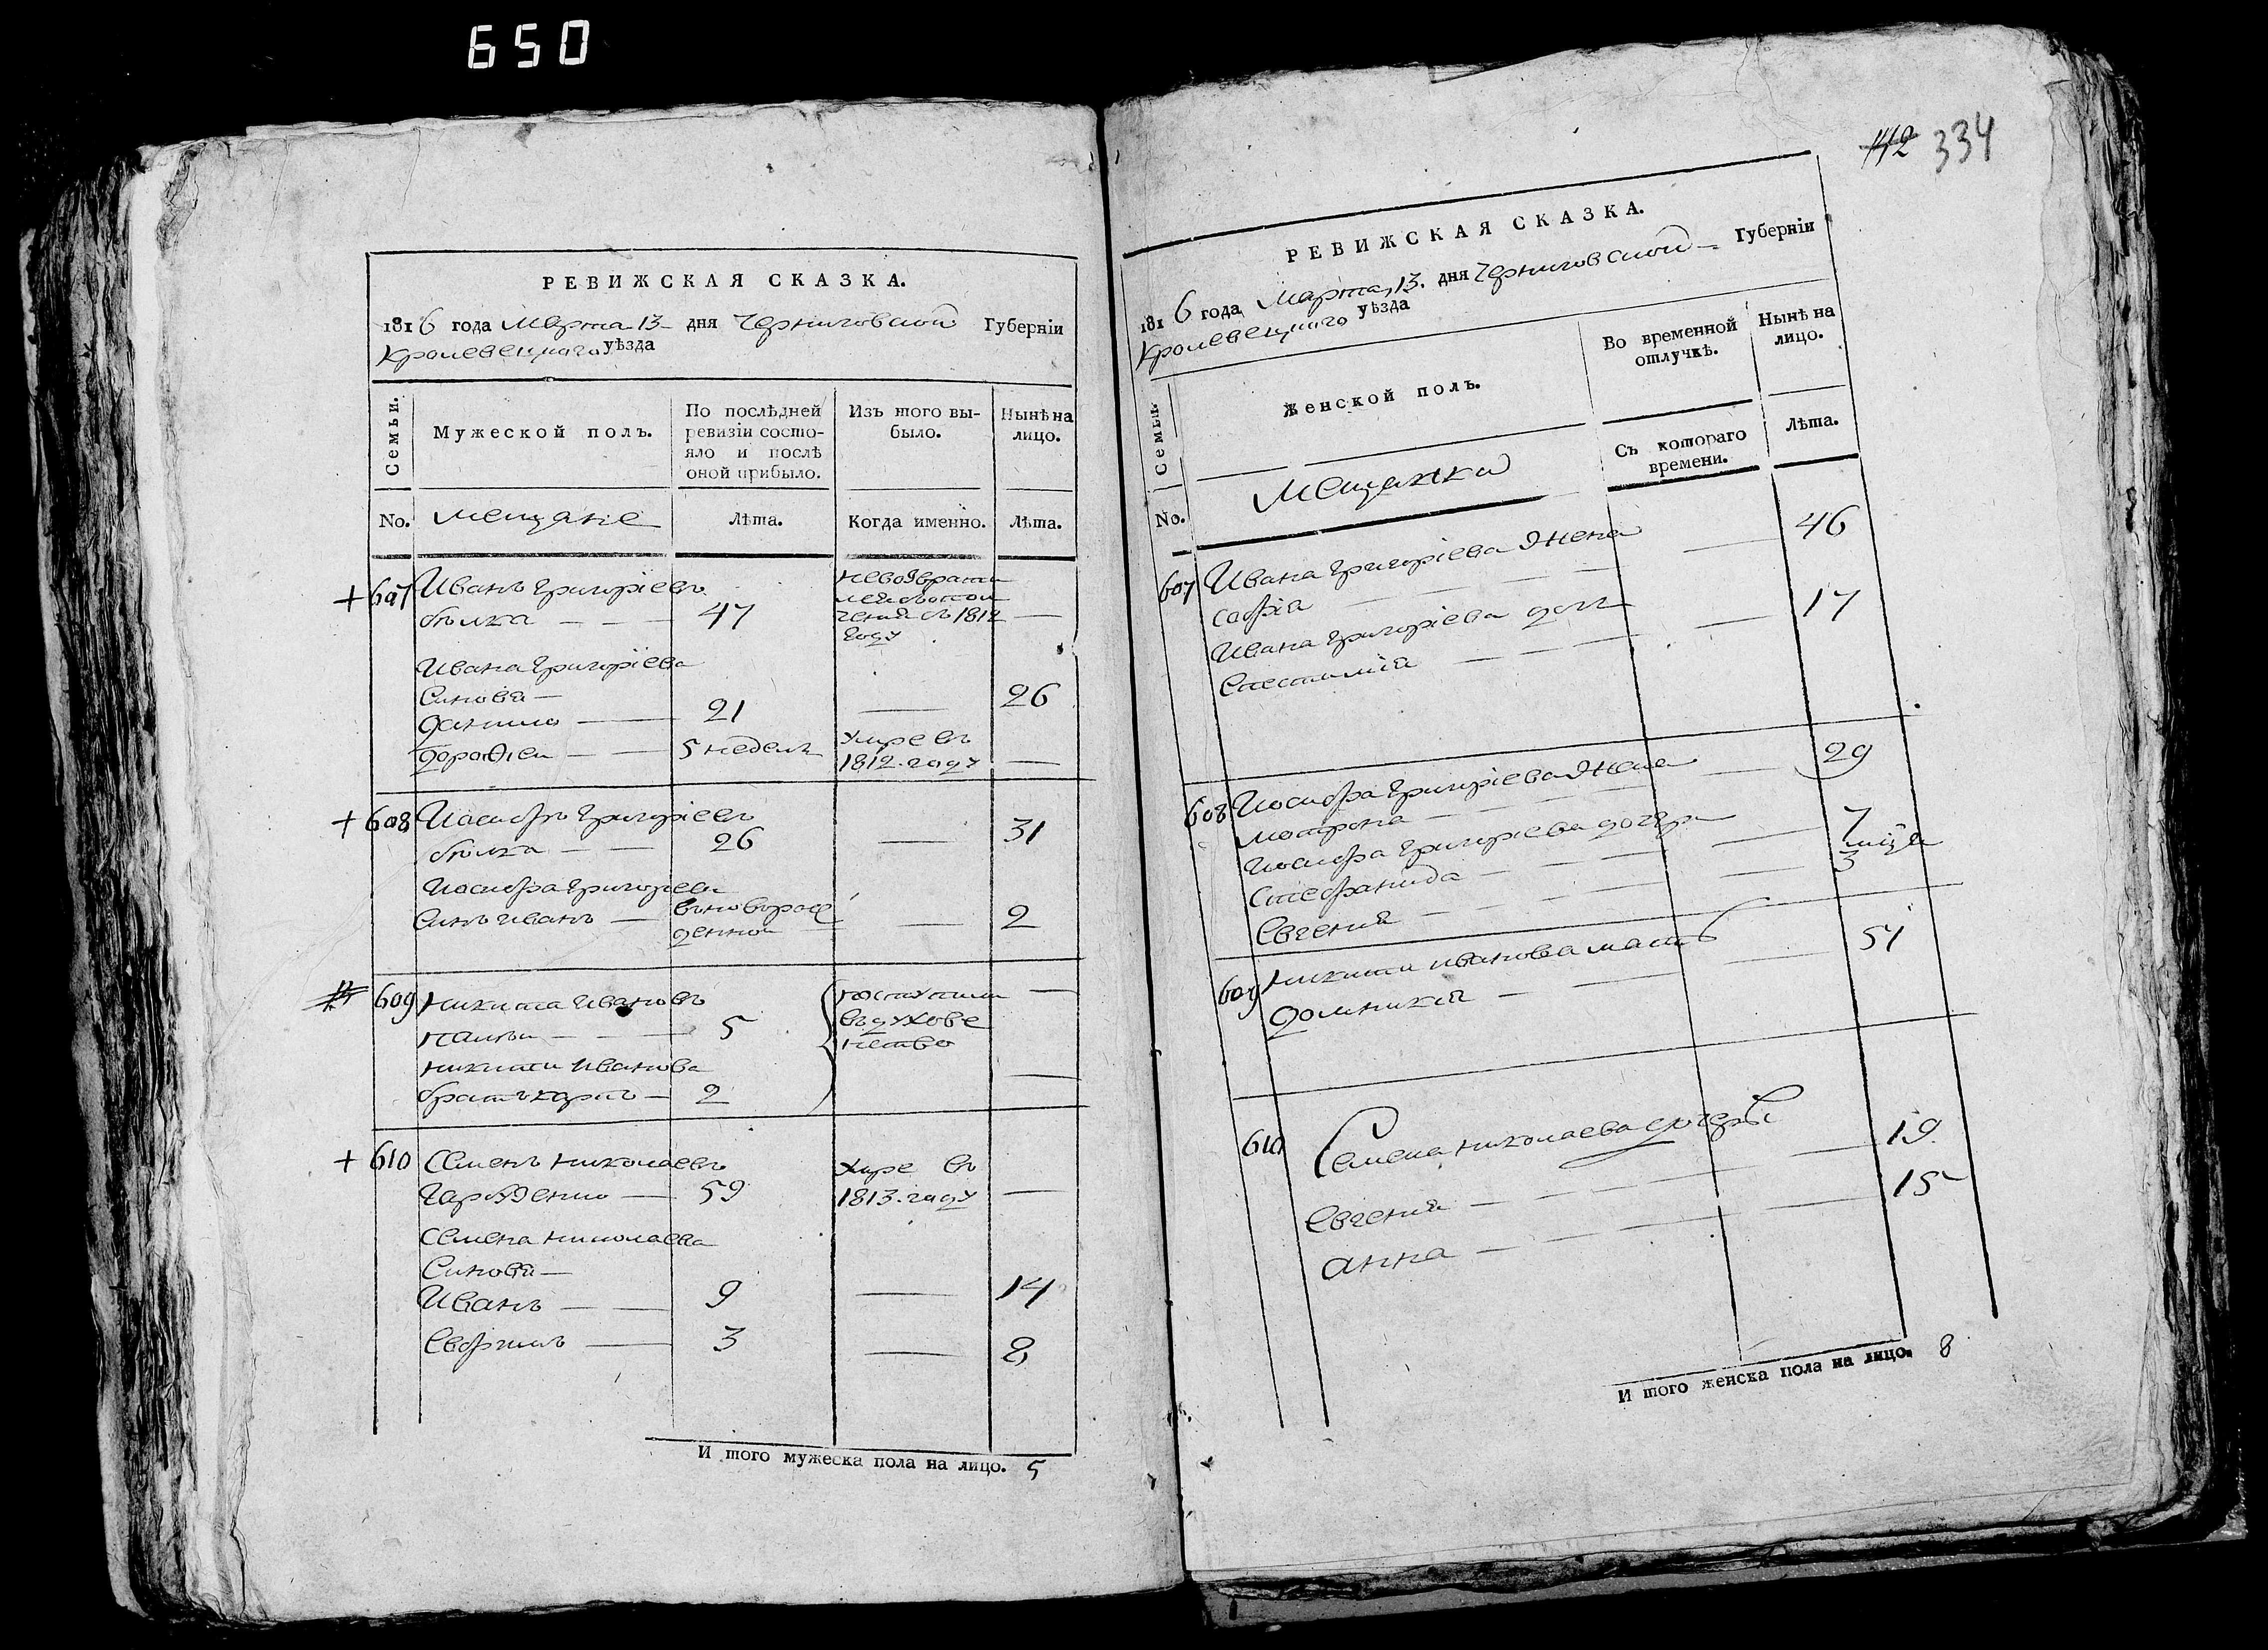 650
РЕВИЖСКАЯ СКАЗКА.
1816 года Марта 13 дня Черниговской Губерніи
Кролевецкаго уѣзда
Семьи.
Мужеской полъ.
По послѣдней ревизіи состояло и послѣ оной прибыло.
Изъ того выбыло.
Нынѣ на лицо.
No. мещане
Лѣта.
Когда именно.
Лѣта.
+ 607 Иванъ Григоріевъ
47
1812
году
Ивана Григоріева
Синовя
Данило 21 26
5 недель умре въ
1812. году
+ 608 Иосифъ Григоріевъ
26 31
Иосифа Григоріева
Синъ Иванъ 2
609 Никита Ивановъ поступили
5 въ духове
нство
Никити Иванова
братъ Карпъ 2
+ 610 Семенъ Николаевъ умре въ
59 1813. году
Семена Николаева
Синовя
Иванъ 9 14
3 8
И того мужеска пола на лицо. 5
112 334
РЕВИЖСКАЯ СКАЗКА.
1816 года Марта 13. дня Черниговской Губерніи
Кролевецкаго уѣзда
Семьи.
Женской полъ.
Во временной отлучкѣ.
Нынѣ на лицо.
No. Мещанки
Съ котораго времени.
Лѣта.
607 Ивана Григоріева жена
Софія 46
Ивана Григоріева дочь
17
608 Иосифа Григоріева жена
Мотрона 29
Иосифа Григоріева дочери
Стефанида 7
Евгения 3
609 Никити Иванова мать
Домникія 51
610 Семена Николаева дочеры
Евгения 19
Анна 15
И того женска пола на лицо. 8